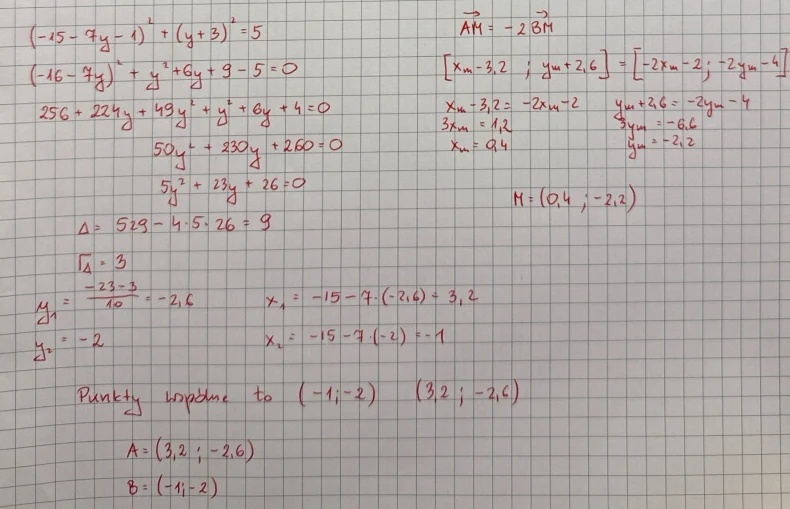 (-15-7y-1)² + (y+3)² = 5
(-16-7y)² + y² + 6y + 9 - 5 = 0
256 + 224y + 49y² + y² + 6y + 4 = 0
50y² + 230y + 260 = 0
5y² + 23y + 26 = 0
Δ = 529 - 4·5·26 = 9
√Δ = 3
y₁ = (-23-3)/10 = -2,6 x₁ = -15-7·(-2,6) = 3,2
y₂ = -2 x₂ = -15-7·(-2) = -1
Punkty wspólne to (-1;-2) (3,2 ; -2,6)
A = (3,2 ; -2,6)
B = (-1;-2)
AM→ = -2 BM→
[xₘ-3,2 ; yₘ+2,6] = [-2xₘ-2 ; -2yₘ-4]
xₘ-3,2 = -2xₘ-2 yₘ+2,6 = -2yₘ-4
3xₘ = 1,2 3yₘ = -6,6
xₘ = 0,4 yₘ = -2,2
M = (0,4 ; -2,2)